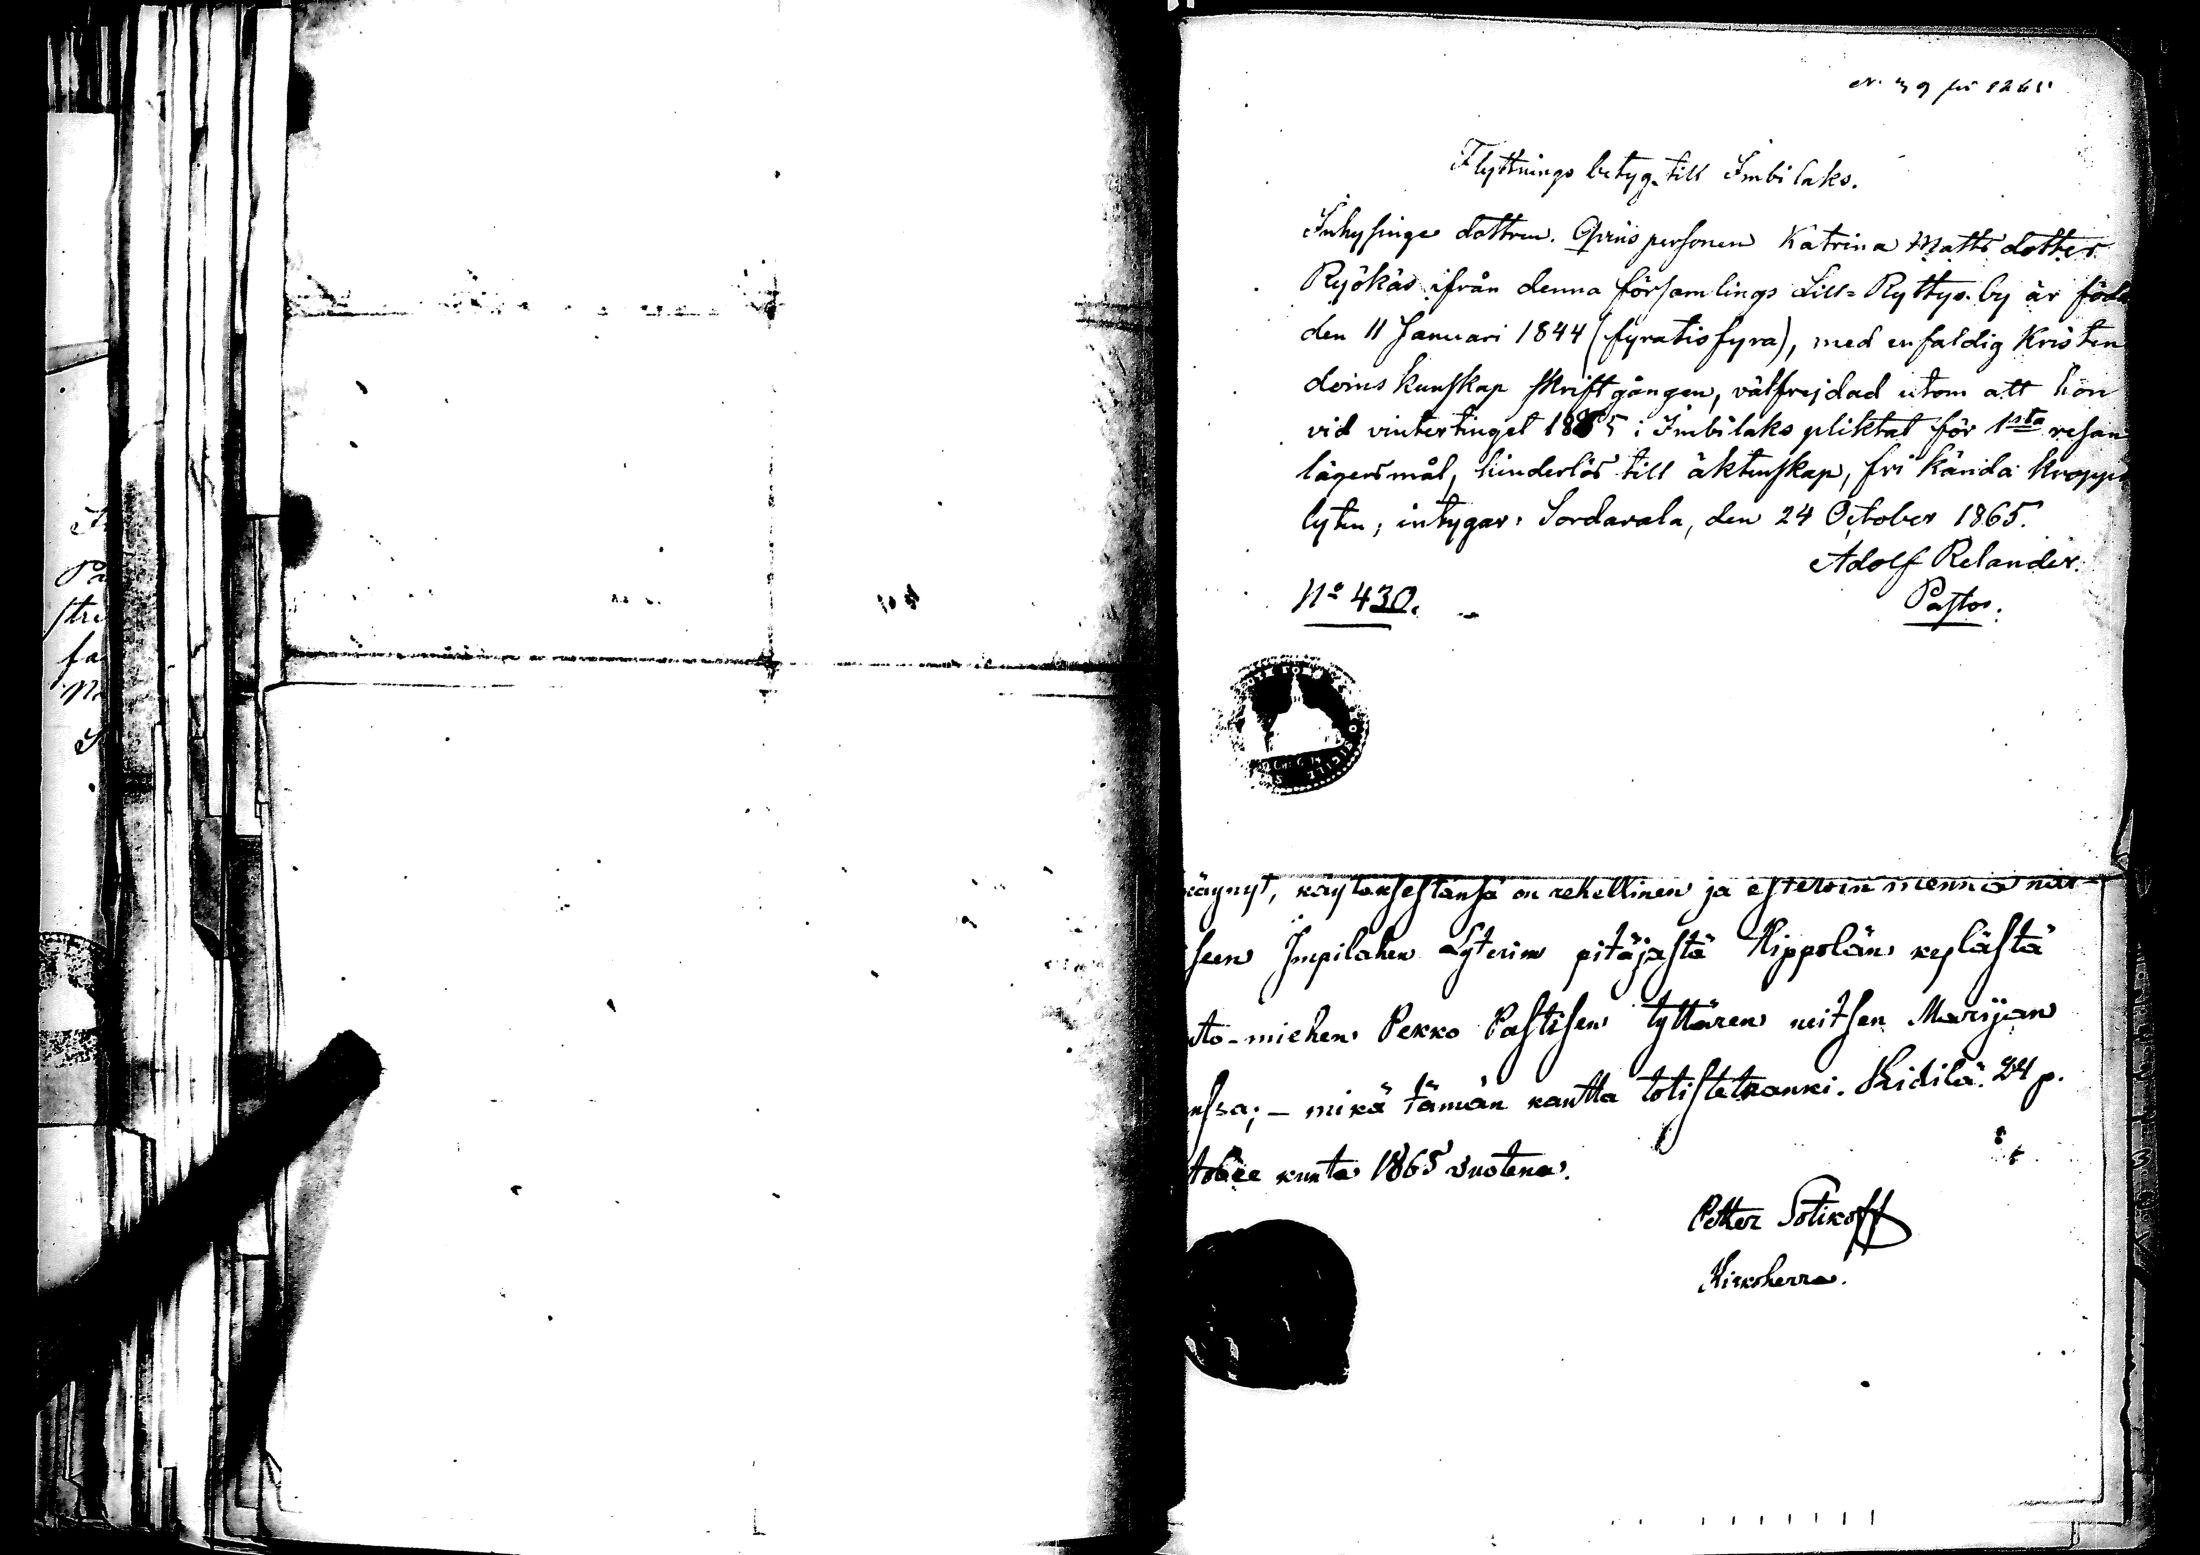 N. 39 för 1865
Flyttnings betyg till Imbilaks.
Inhysinge dottren. Qvins personen Katrina Matts dotter
Ryökäs ifrån denna församlings Lill-Ryttys by är född
den 11 Januari 1844 (fyratiofyra), med enfaldig Kristen
doms kunskap skriftgången, välfrejdad utom att hon
vid vintertinget 1865 i Imbilaks pliktat för 1sta resan
lägersmål, hinderlös till äktenskap, fri kända kropps
lyten; intygar: Sordavala, den 24 October 1865.
Adolf Relander.
Pastor.
No 430.
käynyt, käytöksestänsä on rehellinen ja estetoin menniä nai-
seen Impilahen Lyterim pitäjästä Kippolän kylästä
to-miehen Pekko Pastisen tyttären neitsen Marijan
nssa; - mikä tämän kautta totistetkanki. Kidilä. 24 p.
kunta 1865 vuotena.
Petter Sotikoff
Kirkoherra.